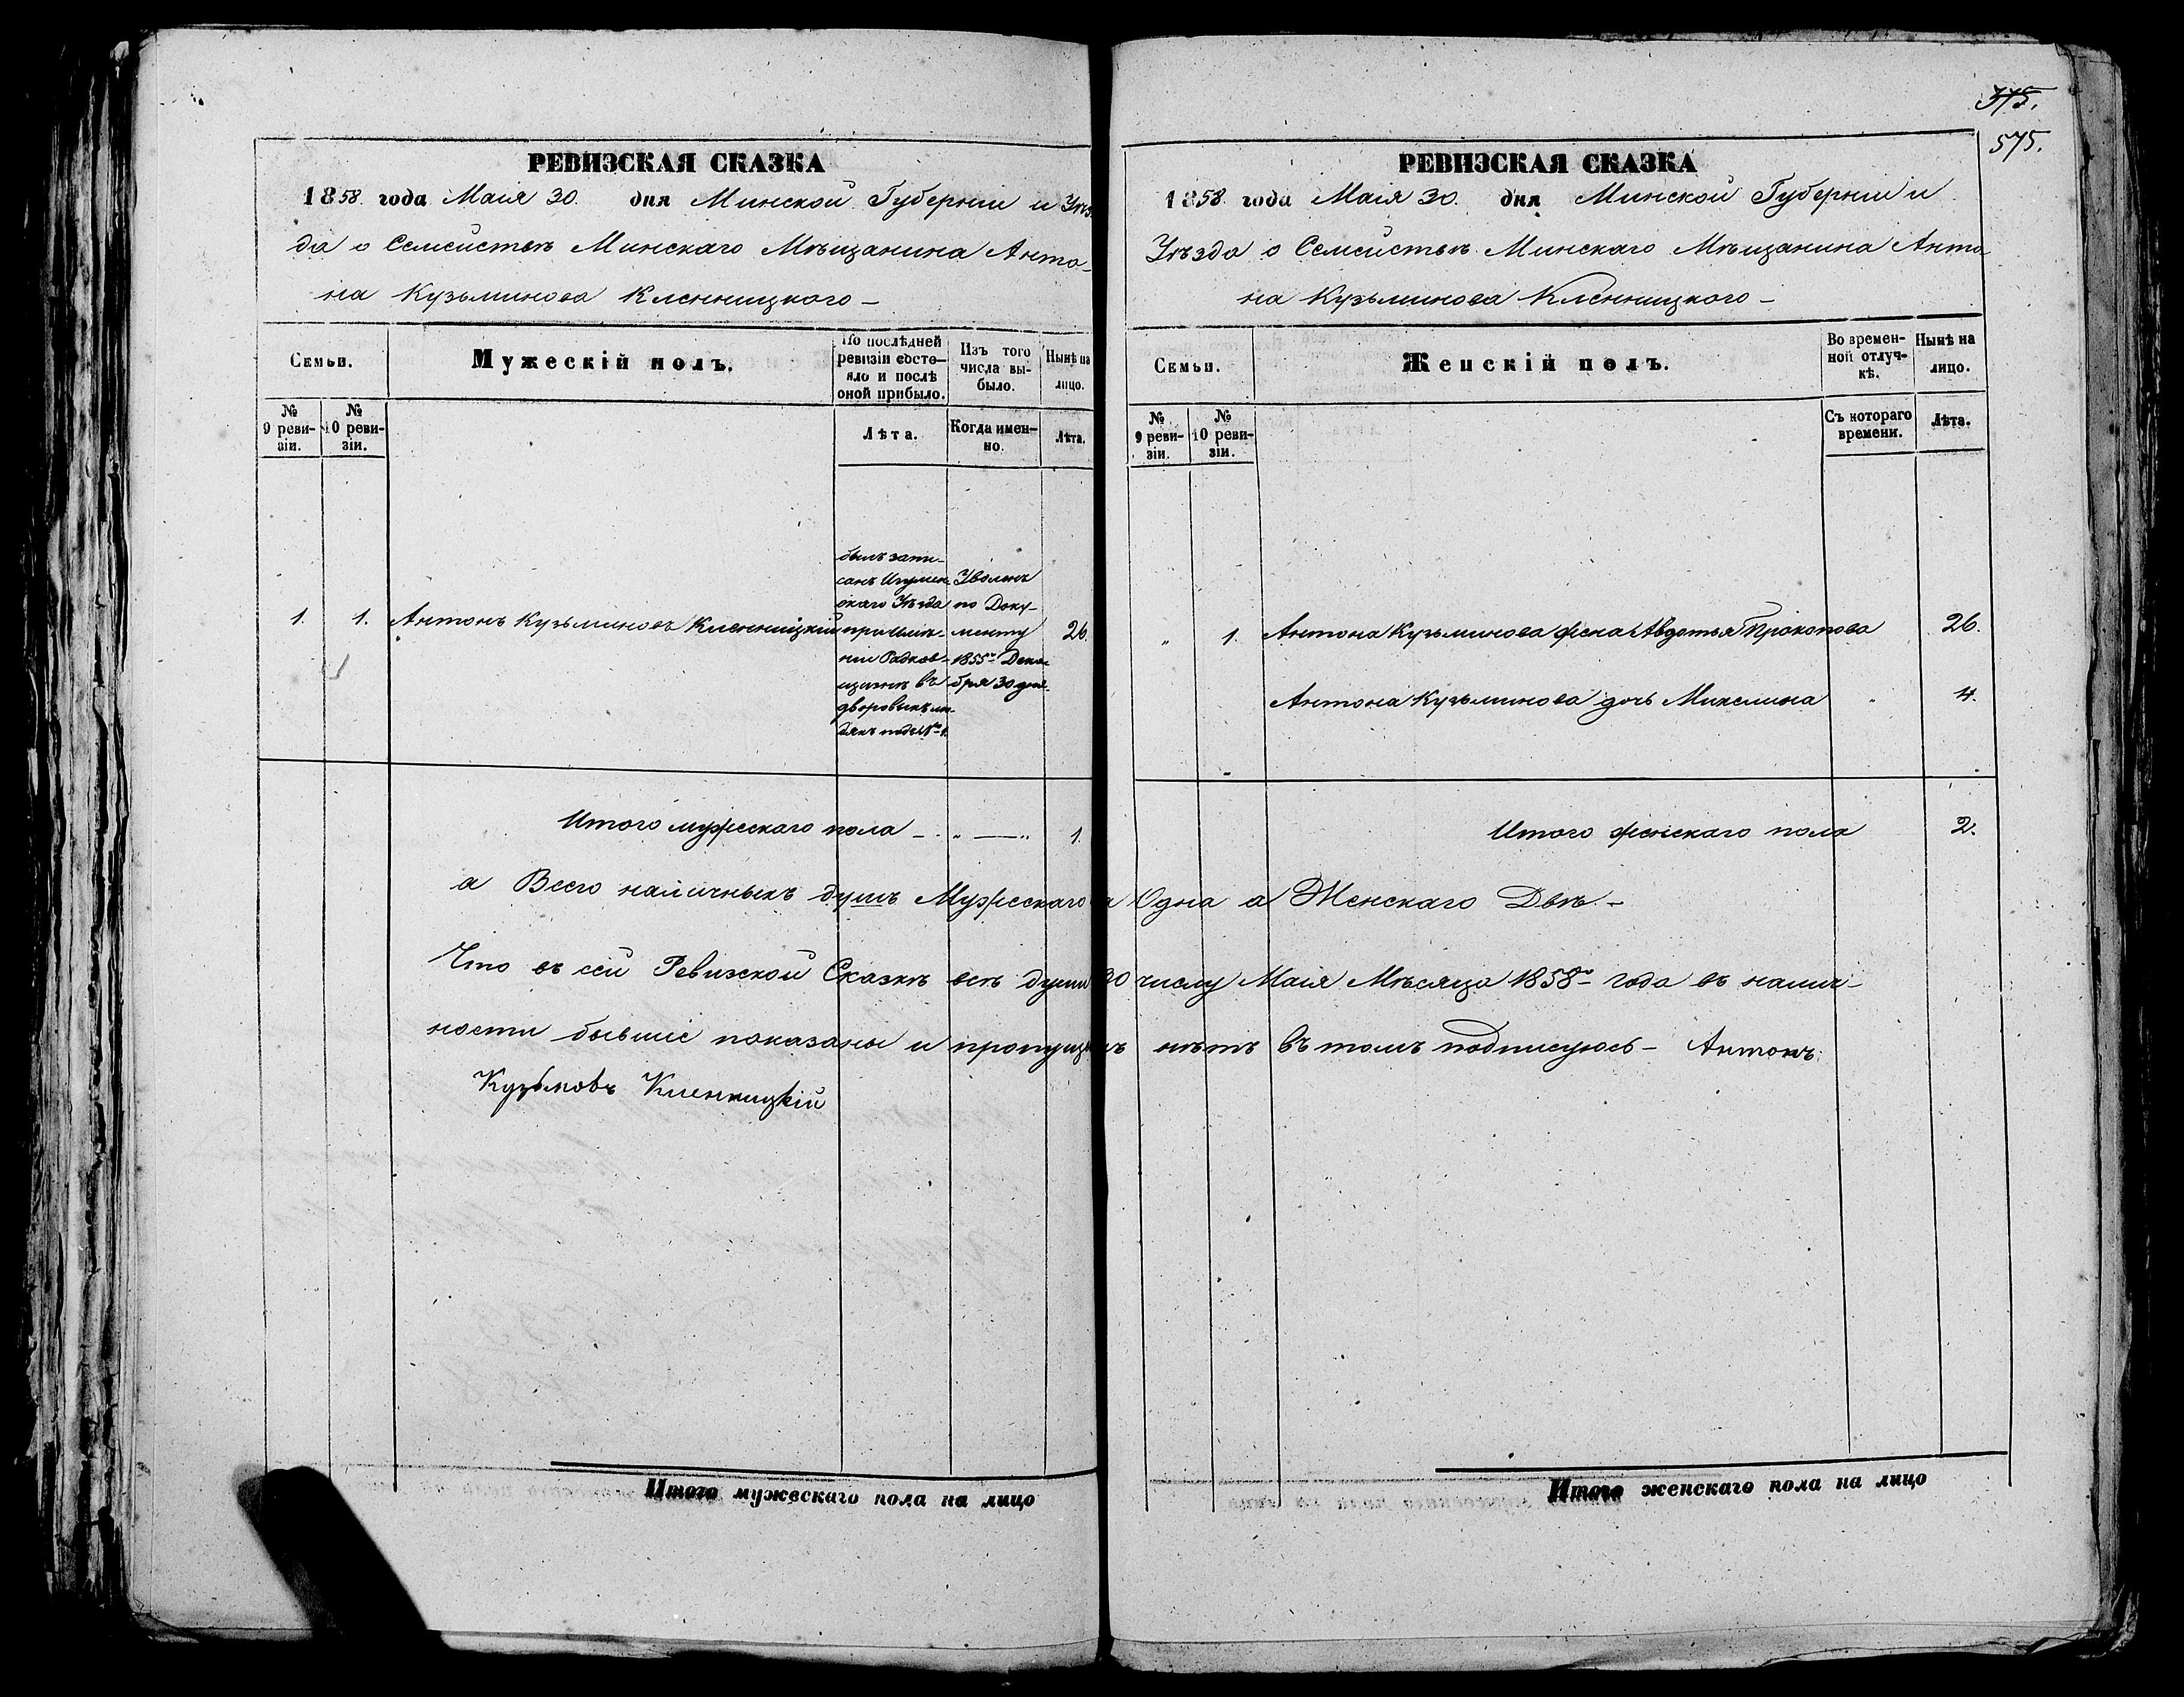 РЕВИЗСКАЯ СКАЗКА
1858 года Маія 30. дня Минской Губерніи и Уѣз
да о Семействѣ Минскаго Мѣщанина Анто-
на Кузьминова Кленницкого-
Семьи.
Мужескій полъ.
По послѣдней
ревизіи состо-
яло и послѣ
оной прибыло.
Изъ того
числа вы-
было.
Нынѣ на
лицо.
№
9 реви-
зіи.
№
10 реви-
зіи.
Лѣта.
Когда имен-
но.
Лѣта.
1. 1. Антонъ Кузьминовъ Кленницкій 26.
былъ запи-
санъ Игумен-
скаго Уѣзда
при имѣ-
ніи
въ
дворовыхъ лю-
дяхъ подъ № 1.
Уволенъ
по Доку-
менту
1855го Дека-
бря 30 дня.
Итого мужескаго пола - „ — „ 1.
РЕВИЗСКАЯ СКАЗКА
375.
575.
1858 года Маія 30. дня Минской Губерніи и
Уѣзда о Семействѣ Минскаго Мѣщанина Анто
на Кузьминова Кленницкого-
Семьи.
Женскій полъ.
Во времен-
ной отлуч-
кѣ.
Нынѣ на
лицо.
№
9 реви-
зіи.
№
10 реви-
зіи.
Съ котораго
времени.
Лѣта.
„ 1. Антона Кузьминова жена Авдотья Прокопова 26.
Антона Кузьминова дочь Микелина „ 4.
Итого женскаго пола 2.
а Всего наличныхъ душъ Мужескаго Одна а Женскаго Двѣ.-
Что въ сей Ревизской Сказкѣ всѣ души 30 числу Маія Мѣсяца 1858го года въ налич-
ности бывшіе показаны и нѣтъ въ томъ подписуюсь- Антонъ
Кузьмовъ Кленницкій
Итого мужескаго пола на лицо
Итого женскаго пола на лицо